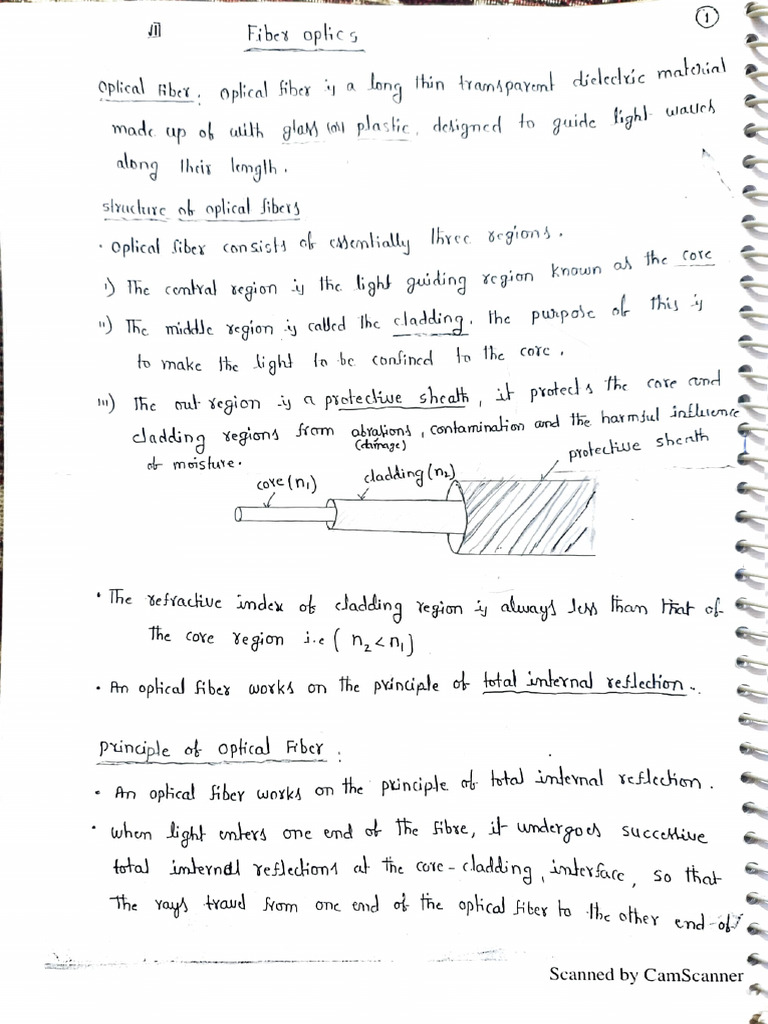 ①
III Fiber optics
Optical Fiber : Optical fiber is a long thin transparent dielectric material
made up of with glass (or) plastic, designed to guide light waves
along their length.
structure of optical fibers
· Optical fiber consists of essentially three regions.
i) The central region is the light guiding region known as the core
ii) The middle region is called the cladding. the purpose of this is
to make the light to be confined to the core.
iii) The out region is a protective sheath, it protects the core and
cladding regions from abrations, contamination and the harmful influence
(damage)
of moisture.
protective sheath
core (n₁)
cladding (n₂)
· The refractive index of cladding region is always less than that of
the core region i.e ( n₂ < n₁ )
· An optical fiber works on the principle of total internal reflection.
principle of Optical Fiber :
· An optical fiber works on the principle of total internal reflection.
· when light enters one end of the fibre, it undergoes successive
total internal reflections at the core-cladding, interface, so that
the rays travel from one end of the optical fiber to the other end of
Scanned by CamScanner